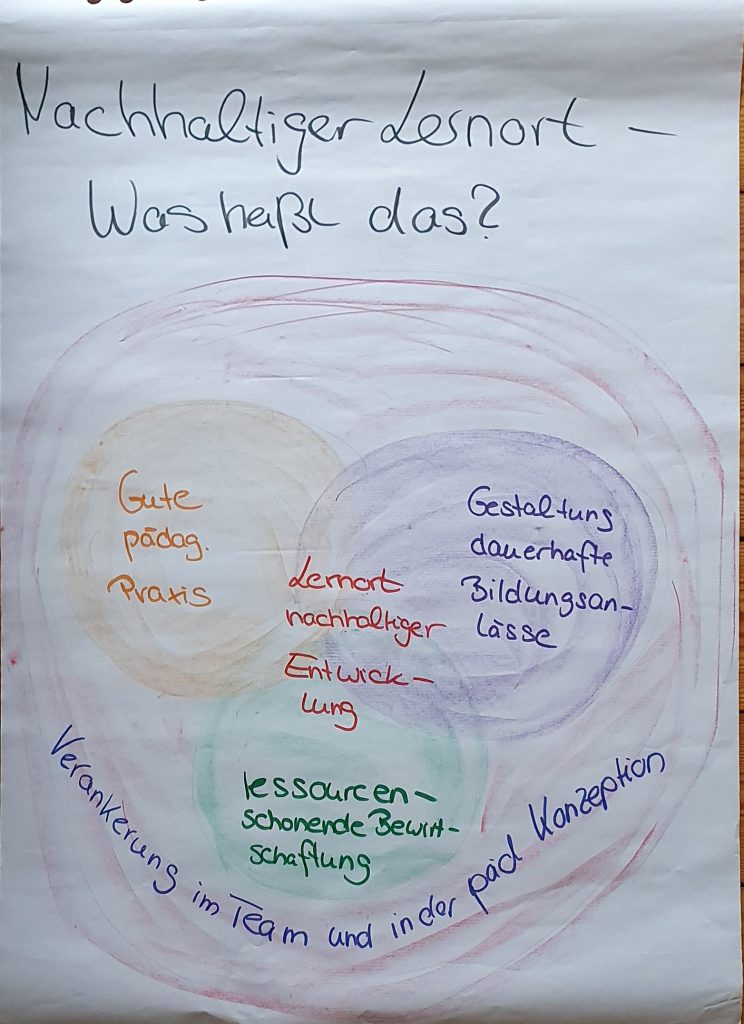 Nachhaltiger Lernort –
Was heißt das?
Gute
pädag.
Praxis
Gestaltung
dauerhafte
Bildungsan-
lässe
Lernort
nachhaltiger
Entwick-
lung
ressourcen-
schonende Bewirt-
schaftung
Verankerung im Team und in der päd Konzeption